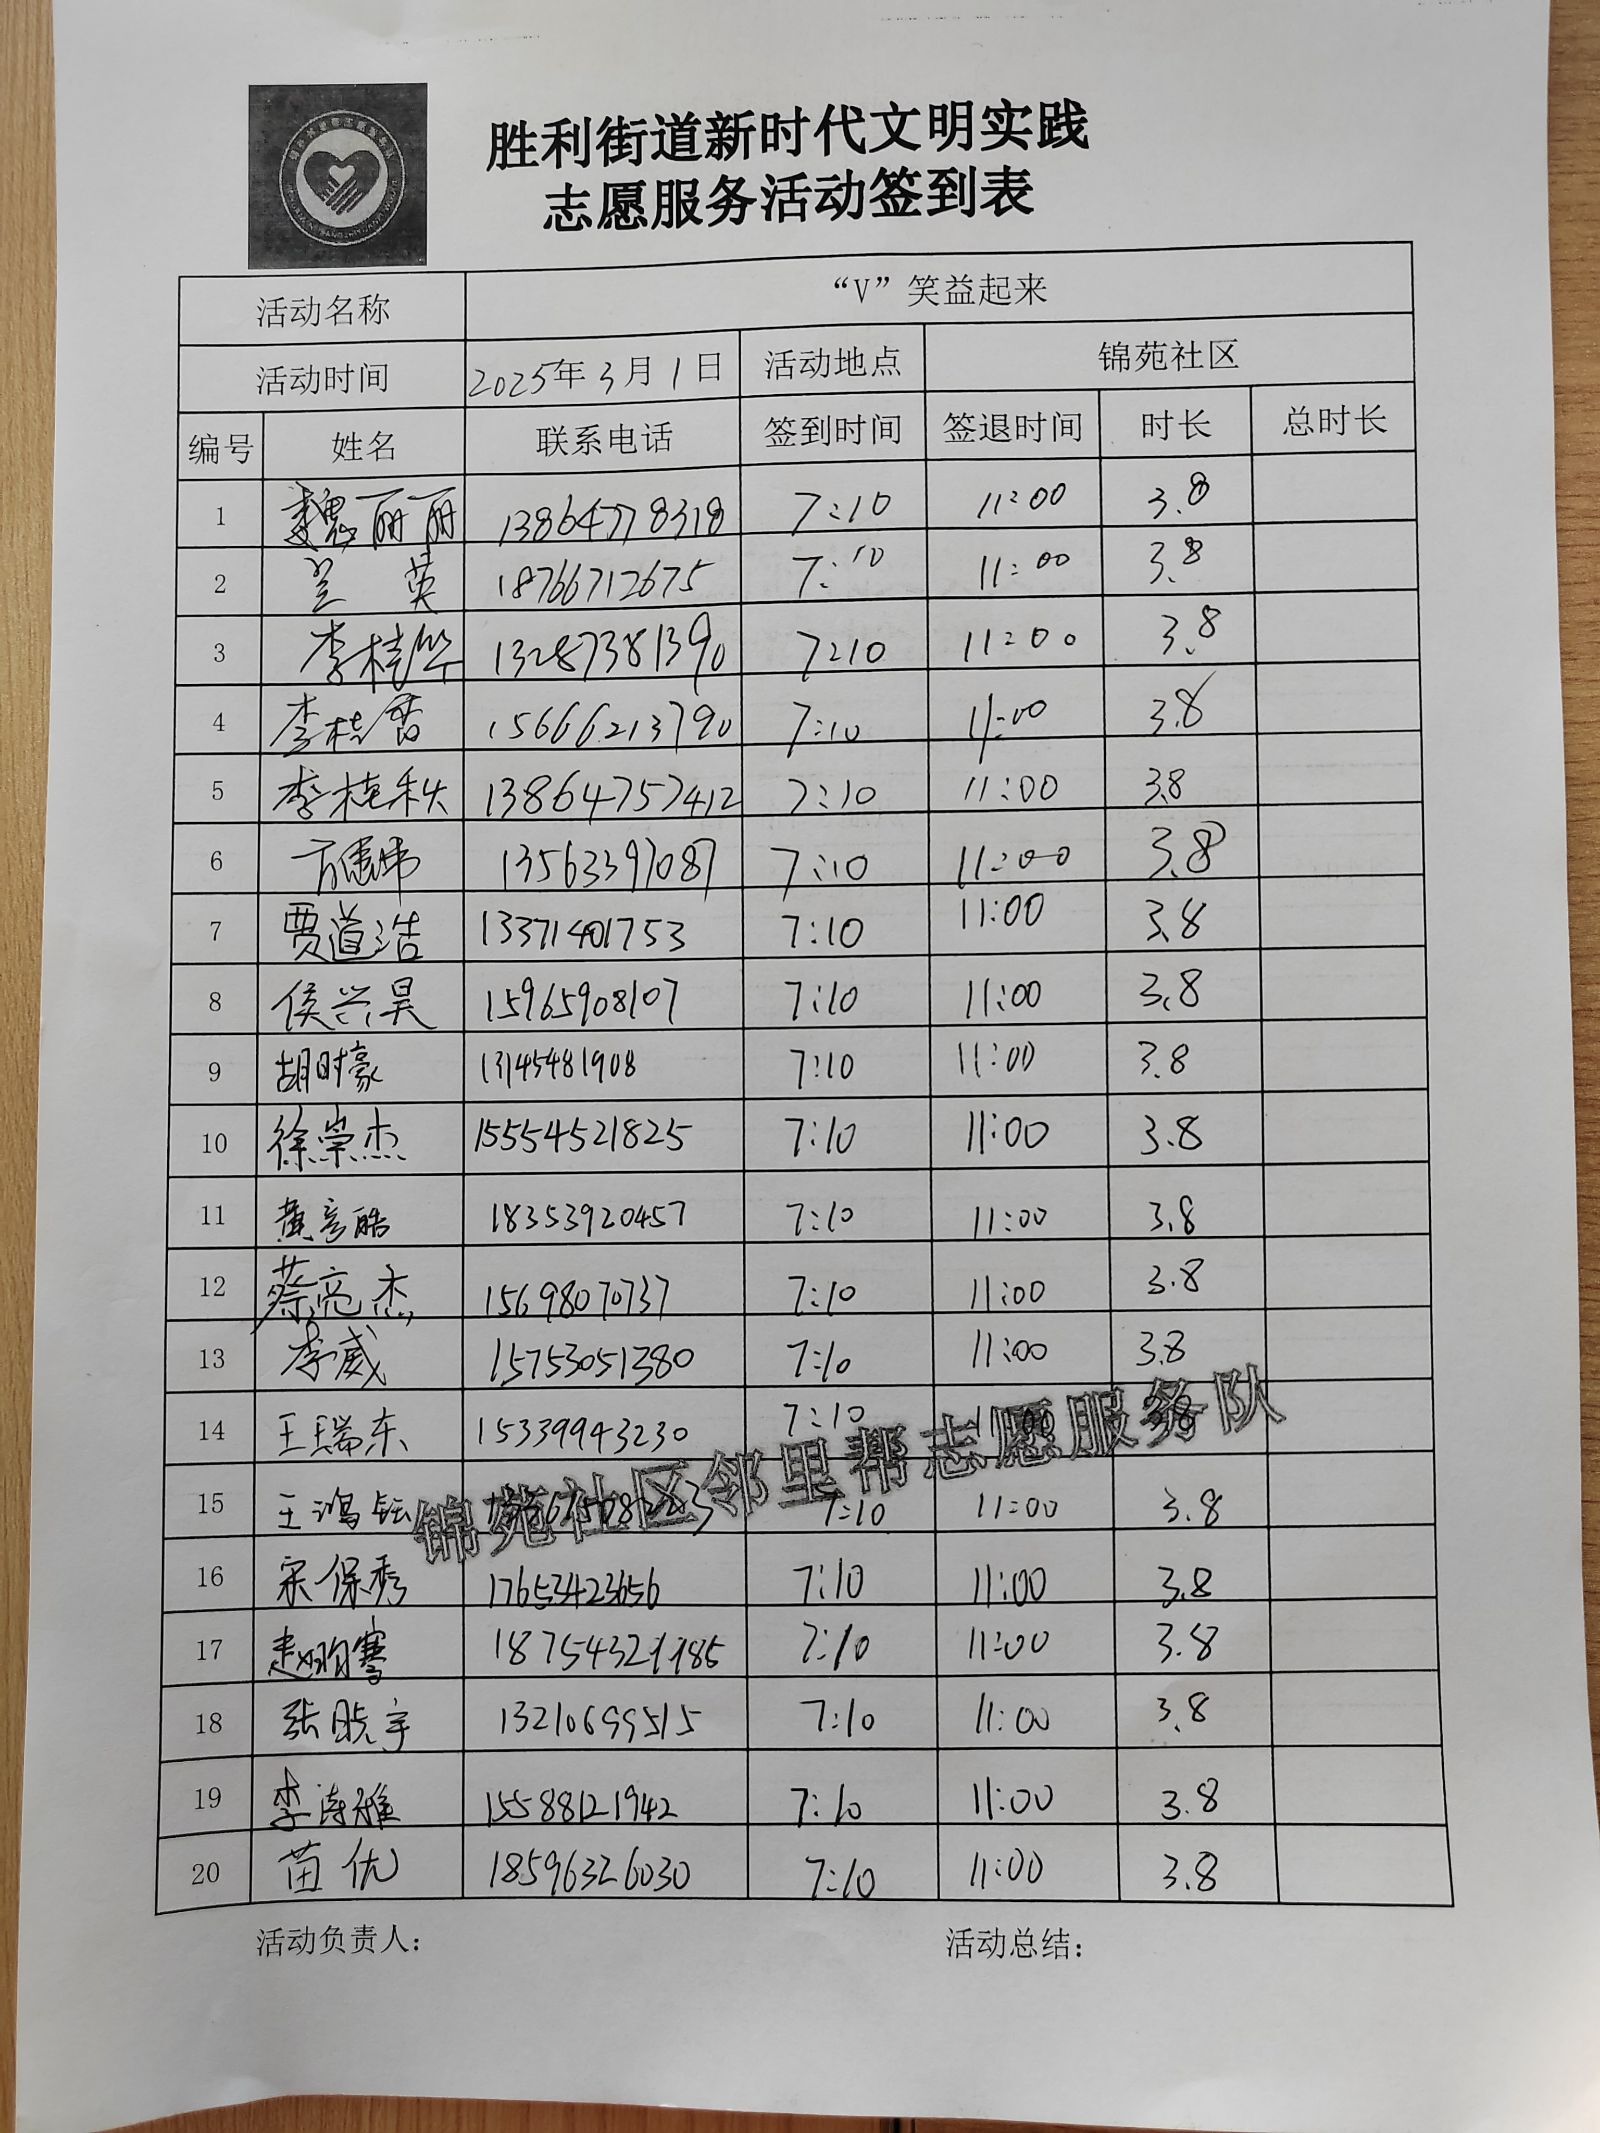 胜利街道新时代文明实践
志愿服务活动签到表
活动名称 “V”笑益起来
活动时间 2025年3月1日 活动地点 锦苑社区
编号 姓名 联系电话 签到时间 签退时间 时长 总时长
1 魏丽丽 13864778318 7:10 11:00 3.8
2 兰英 18766712675 7:10 11:00 3.8
3 李桂华 13287381390 7:10 11:00 3.8
4 李桂香 15666213790 7:10 11:00 3.8
5 李桂秋 13864757412 7:10 11:00 3.8
6 13563397087 7:10 11:00 3.8
7 贾道浩 13371401753 7:10 11:00 3.8
8 侯兴昊 15965908107 7:10 11:00 3.8
9 胡时豪 13145481908 7:10 11:00 3.8
10 徐崇杰 15554521825 7:10 11:00 3.8
11 黄彦皓 18353920457 7:10 11:00 3.8
12 蔡亮杰 15698070737 7:10 11:00 3.8
13 李威 15753051380 7:10 11:00 3.8
14 王瑞东 15339943230 7:10 11:00 3.8
锦苑社区邻里帮志愿服务队
15 王鸿钰 7:10 11:00 3.8
16 宋保秀 17653423656 7:10 11:00 3.8
17 赵明骞 18754321185 7:10 11:00 3.8
18 张晓宇 13210699515 7:10 11:00 3.8
19 李涛雅 15588121942 7:10 11:00 3.8
20 苗优 18596326030 7:10 11:00 3.8
活动负责人： 活动总结：